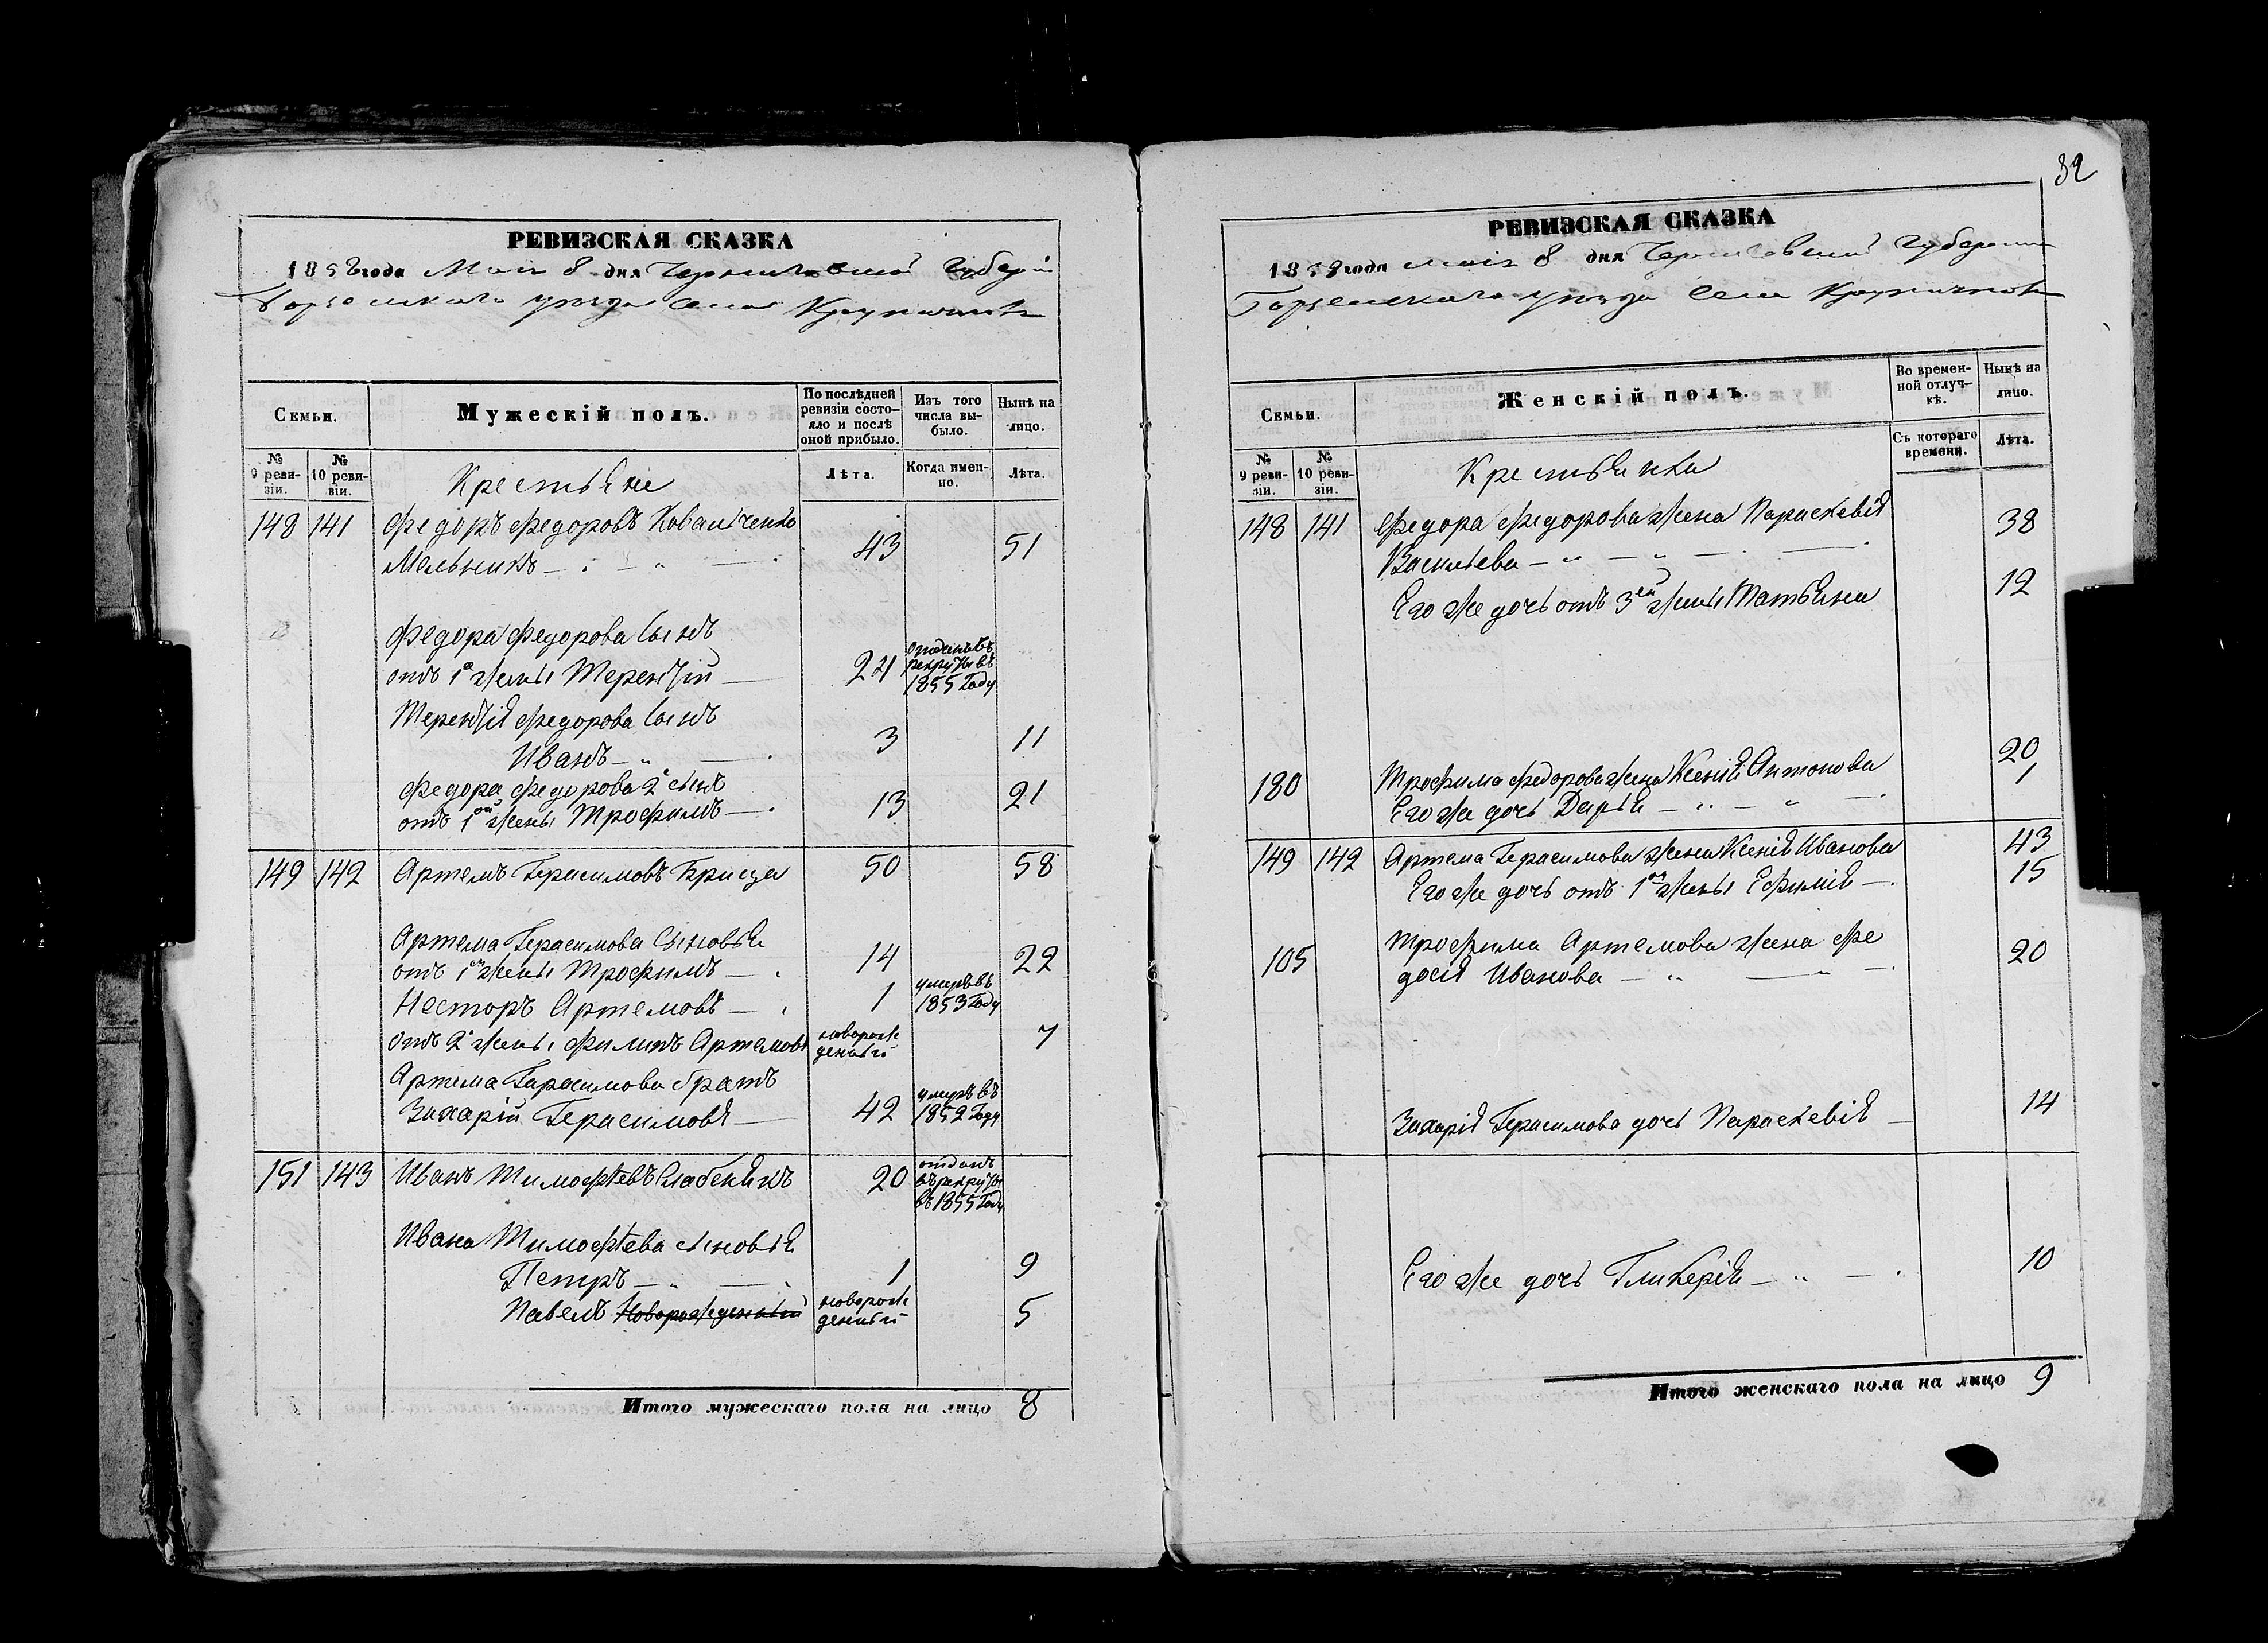 РЕВИЗСКАЯ СКАЗКА
1858 года Мая 8 дня Черниговской Губерніи
Борзенского уезда Села Крупичполя
Семьи.
Мужескій полъ.
По послѣдней ревизіи состо-
яло и послѣ
оной прибыло.
Изъ того
числа вы-
было.
Нынѣ на
лицо.
№
9 реви-
зіи.
№
10 реви-
зіи.
Крестьяне
Лѣта.
Когда имен-
но.
Лѣта.
148 141 Федоръ Федоровъ Ковальченко
Мельникъ 43 51
Федора Федорова Сынъ
отъ 1й жены Терентій 21
отданъ въ
рекруты въ
1855 Году
Терентія Федорова Сынъ
Иванъ 3 11
Федора Федорова 2й сынъ
отъ 1ой жены Трофимъ 13 21
149 142 Артемъ Герасимовъ 50 58
Артема Герасимова Сыновья
отъ 1й жены Трофимъ 14 22
Несторъ Артемовъ 1
умеръ въ
1853 Году
отъ 2й жены Филипъ Артемовъ
новорож
денный
7
Артема Герасимова братъ
Захарій Герасимовъ 42
умеръ въ
1852 Году
151 143 Иванъ Тимофѣевъ 20
отданъ
въ рекруты
въ 1855 Году
Ивана Тимофѣева сыновья
Петръ 1 9
Павелъ Новорожденный
новорож
денный
5
Итого мужескаго пола на лицо 8
32
РЕВИЗСКАЯ СКАЗКА
1858 года мая 8 дня Черниговской Губерніи
Борзенского уезда Села Крупичполя
Семьи.
Женскій полъ.
Во времен-
ной отлуч-
кѣ.
Нынѣ на
лицо.
№
9 реви-
зіи.
№
10 реви-
зіи.
Крестьянки
Съ котораго
времени.
Лѣта.
148 141 Федора Федорова жена Параскевія
Васильева 38
Его же дочь отъ 3ей жены Татьяна 12
180 Трофима Федорова жена Ксенія Антонова 20
Его же дочь Дарья 1
149 142 Артема Герасимова жена Ксенія Иванова 43
Его же дочь отъ 1ой жены Ефимія 15
105 Трофима Артемова жена Фе
досія Иванова 20
Захарія Герасимова дочь Параскевія 14
Его же дочь Гликерія 10
Итого женскаго пола на лицо 9